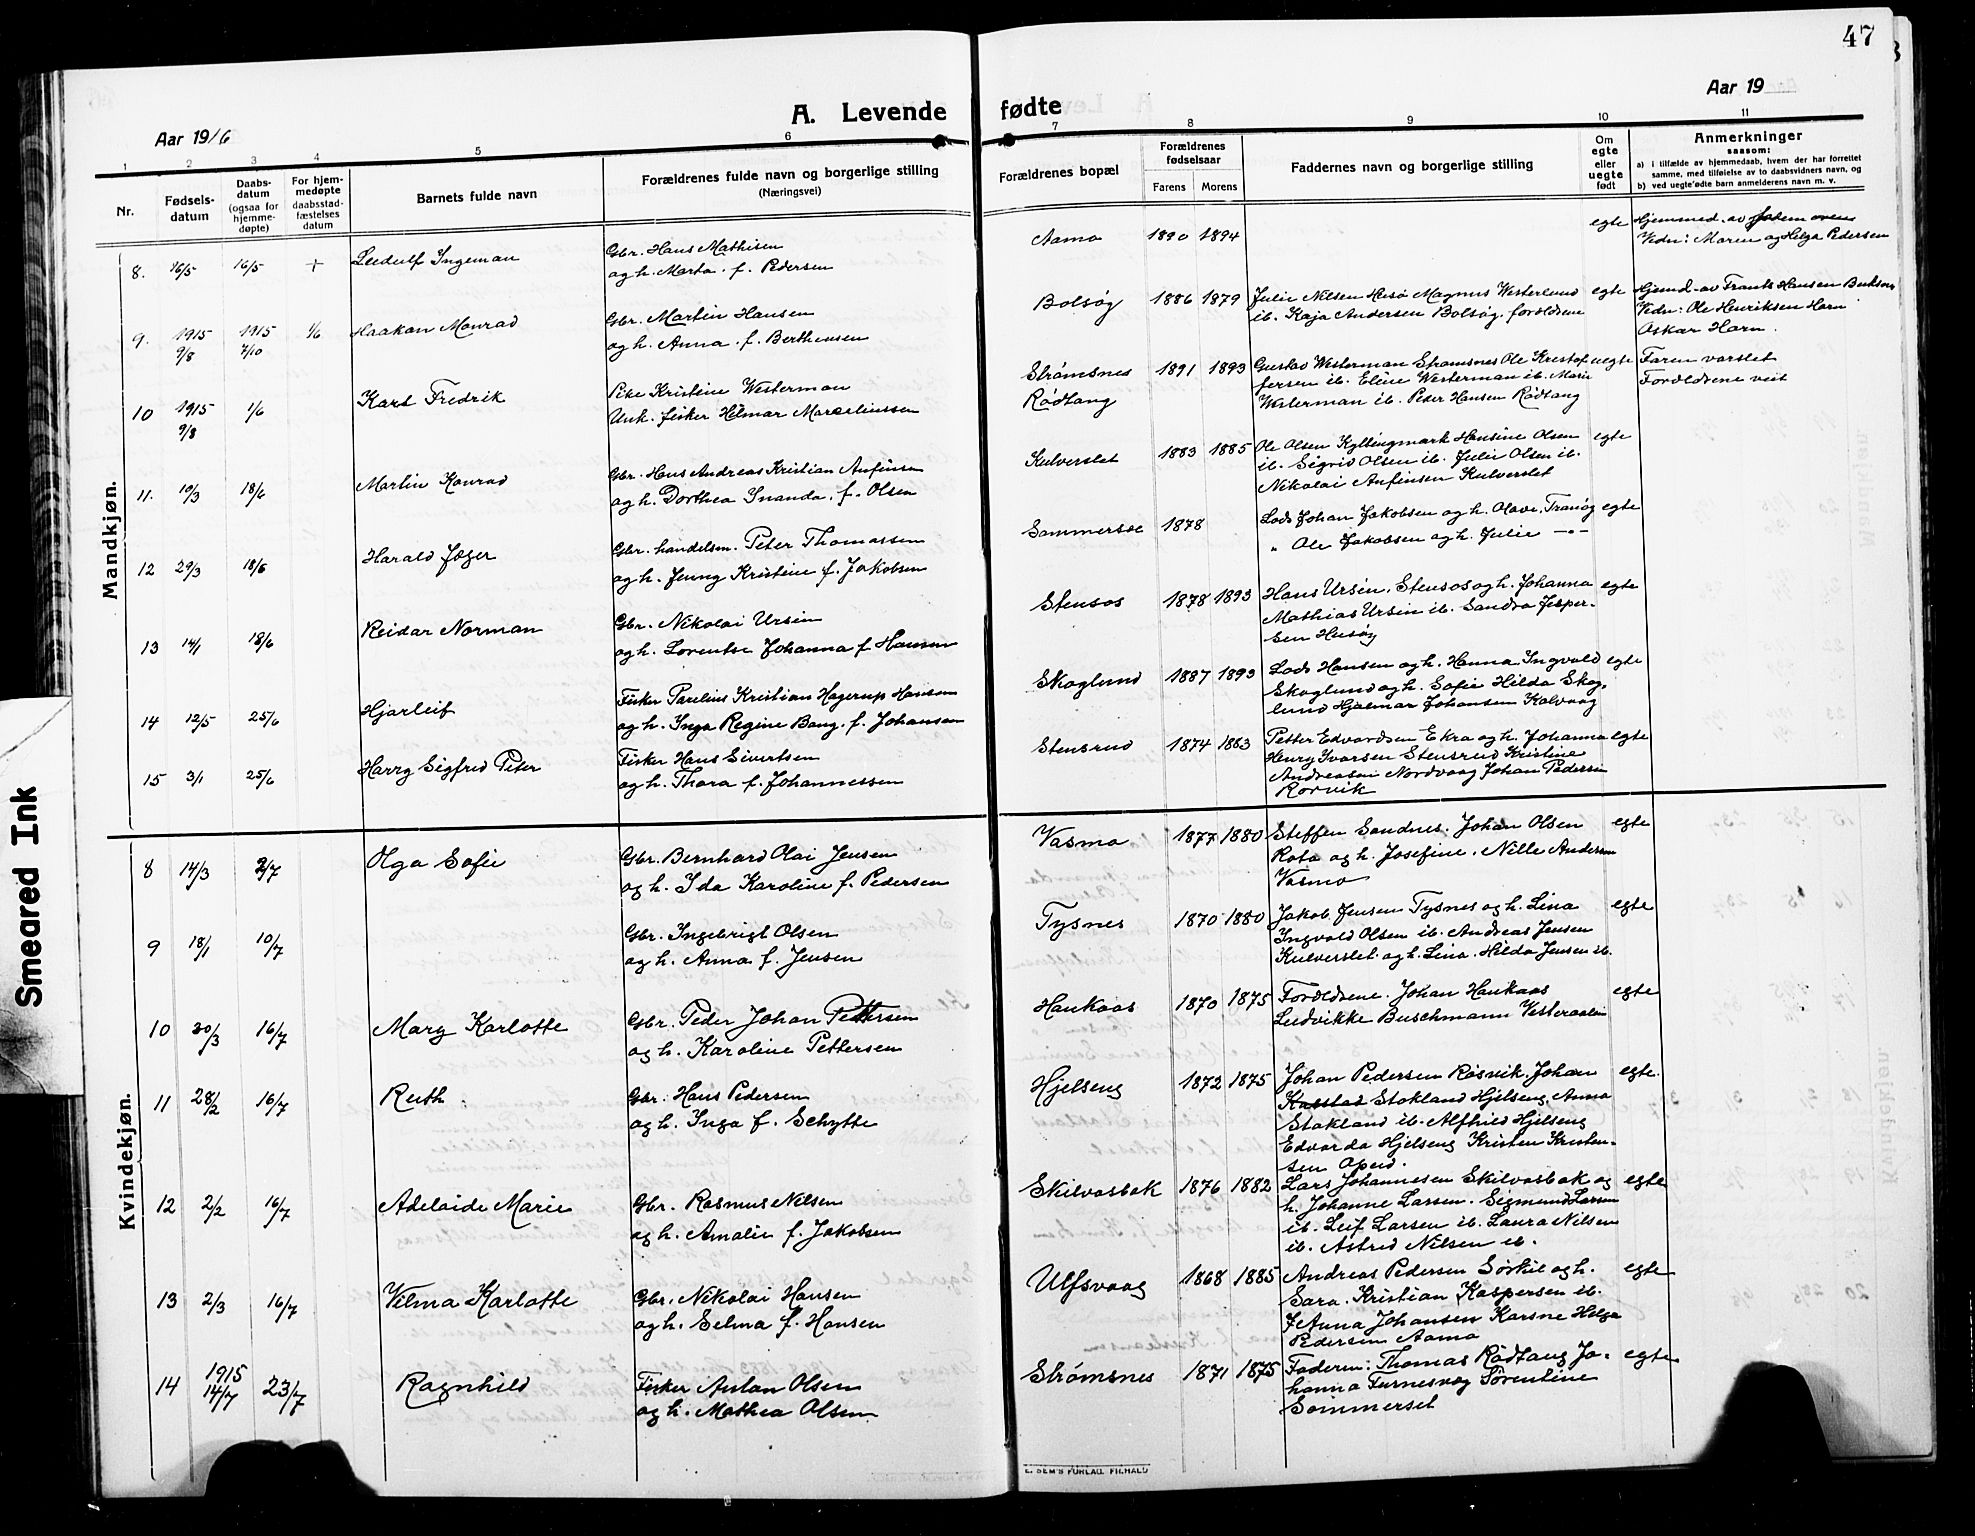 47
Aar 1916
A. Levende fødte
Aar 19
1 2 3 4 5 6 7 8 9 10 11
Nr.
Fødsels-
datum
Daabs-
datum
(ogsaa for
hjemme-
døpte)
For hjem-
medøpte
daabsstad-
fæstelses
datum
Barnets fulde navn
Forældrenes fulde navn og borgerlige stilling
(Næringsvei)
Forældrenes bopæl
Forældrenes
fødselsaar
Farens Morens
Faddernes navn og borgerlige stilling
Om
egte
eller
uegte
født
Anmerkninger
saasom:
a) i tilfælde av hjemmedaab, hvem der har forrettet
samme, med tilføielse av to daabsvidners navn, og
b) ved uegte fødte barn anmelderens navn m. v.
Mandkjøn.
8. 16/5 16/5 + Ludulf Ingeman
Gbr. Hans Mathisen
og h. Marta f. Pedersen
Aamo 1890 1894 egte
Hjemmed. av
Vidn: Maren og Helga Pedersen
9. 1915 9/8 1915 7/10 1/6 Haakon Monrad
Gbr. Martin Hansen
og h. Anna f. Berthensen
Bolsøy 1886 1879
Julie Nilsen Husø Magnus Westerlund
ib. Kaja Andersen Bolsøy. forældrene
egte
Hjemd. av Frants Hansen
Vidn: Ole Henriksen Horn
Oskar Horn.
10 1915 9/8 1/6 Karl Fredrik
Pike Kristine Westerman
Unk. fisker Hilmar Marcelinssen
Strømsnes
Rødtang
1891 1893
Gustav Westerman Strømsnes Ole Kristof
fersen ib. Eline Westerman ib. Marie
Westerman ib. Peder Hansen Rødtang
uegte
Faren varslet
Forældrene veit
11. 10/3 18/6 Martin Konrad
Gbr. Hans Andreas Kristian Anfinsen
og h. Dorthea Inanda. f. Olsen
Kulverslet 1883 1885
Ole Olsen Kyllingmark Hansine Olsen
ib. Sigrid Olsen ib. Julie Olsen ib.
Nikolai Anfinsen Kulverslet
egte
12 29/3 18/6 Harald Jæger
Gbr. handelsm. Peter Thomassen
og h. Jenny Kristine f. Jakobsen
Sommersæ 1878
Lods Johan Jakobsen og h. Olave, Tranøy
" Ole Jakobsen og h. Julie —"—
egte
13 14/1 18/6 Reidar Norman
Gbr. Nikolai Ursin
og h. Lorentse Johanna f Hansen
Stensos 1878 1893
Hans Ursin, Stensos og h. Johanna
Mathias Ursin ib. Sandra Jesper-
sen Husøy
egte
14 12/5 25/6 Hjarleif
Fisker Parelius Kristian Hagerup Hansen
og h. Inga Regine Bang. f. Johansen
Skoglund 1887 1893
Lods Hansen og h. Hanna Ingvald
Skoglund og h. Sofie Hilda Skog-
lund Hjalmar Johansen Kalvaag
egte
15 3/1 25/6 Harry Sigfred Peter
Fisker Hans Sivertsen
og h. Thora f. Johannessen
Stensrud 1874 1883
Petter Edvardsen Ekra og h. Johanna
Henry Ivarsen Stensrud Kristine
Andreasen Nordvaag Johan Pedersen
Rorvik
egte
Kvindekjøn.
8 14/3 2/7 Olga Sofie
Gbr. Bernhard Olai Jensen
og h. Ida Karoline f. Pedersen
Vasmo 1877 1880
Steffen Sandnes. Johan Olsen
Rota og h. Josefine. Nille Andersen
Vasmo
egte
9 18/1 10/7
Gbr. Ingebrigt Olsen
og h. Anna f. Jensen
Tysnes 1870 1880
Jakob Jensen Tysnes og h. Lina
Ingvald Olsen ib. Andreas Jensen
Kulverslet og h. Lina. Hilda Jensen ib.
egte
10 30/3 16/7 Mary Karlotte
Gbr. Peder Johan Pettersen
og h. Karoline Pettersen
Haukaas 1870 1875
Forældrene. Johan Haukaas
Ludvikke Buschmann Vesteraalen
egte
11 28/2 16/7 Ruth
Gbr. Hans Pedersen
og h. Inga f. Schytte
Hjelseng 1872 1875
Johan Pedersen Røsvik. Johan
Stokland Hjelseng. Anna
Stokland ib. Alfhild Hjelseng
Edvarda Hjelseng Kristen Kristen-
sen Opeid.
egte.
12 2/2 16/7 Adelaide Marie
Gbr. Rasmus Nilsen
og h. Amalie f. Jakobsen
Skilvasbak 1876 1882
Lars Johannesen Skilvasbak og
h. Johanne Larsen. Sigmund Larsen
ib. Leif Larsen ib. Laura Nilsen
ib. Astrid Nilsen ib.
egte
13 2/3 16/7 Vilma Karlotte
Gbr. Nikolai Hansen
og h. Selma f. Hansen
Ulfsvaag 1868 1885
Andreas Pedersen Sørkil og h.
Sara. Kristian Kaspersen ib.
Anna Johansen Karsne Helga
Pedersen Aamo
egte
14 1915 14/7 23/7 Ragnhild
Fisker Anton Olsen
og h. Mathea Olsen
Strømsnes 1871 1875
Faderen: Thomas Rødtang Jo-
hanna Furnesvag Sørentine
Sommerset
egte
E. SEM'S FORLAG. FR.HALD
Smeared Ink